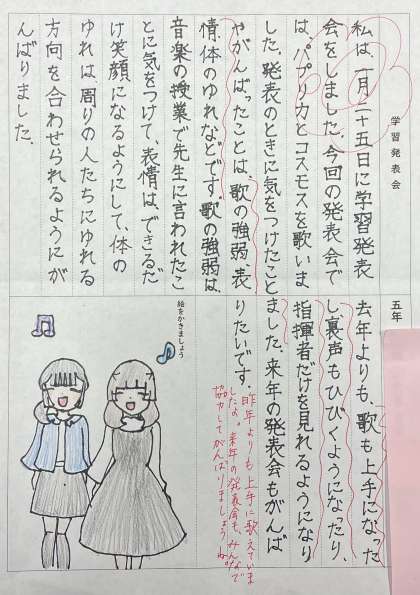 学習発表会
私は、一月二十五日に学習発表
会をしました。今回の発表会で
は、パプリカとコスモスを歌いま
した。発表のときに気をつけたこと
やがんばったことは、歌の強弱、表
情、体のゆれなどです。歌の強弱は、
音楽の授業で先生に言われたこ
とに気をつけて、表情は、できるだ
け笑顔になるようにして、体の
ゆれは、周りの人たちにゆれる
方向を合わせられるようにが
んばりました。
五年
去年よりも、歌も上手になった
し、裏声もひびくようになったり、
指揮者だけを見れるようになり
ました。来年の発表会もがんば
りたいです。
昨年よりも上手に歌えていま
したよ。来年の発表会も、みんなで
協力してがんばりましょうね。
絵をかきましょう